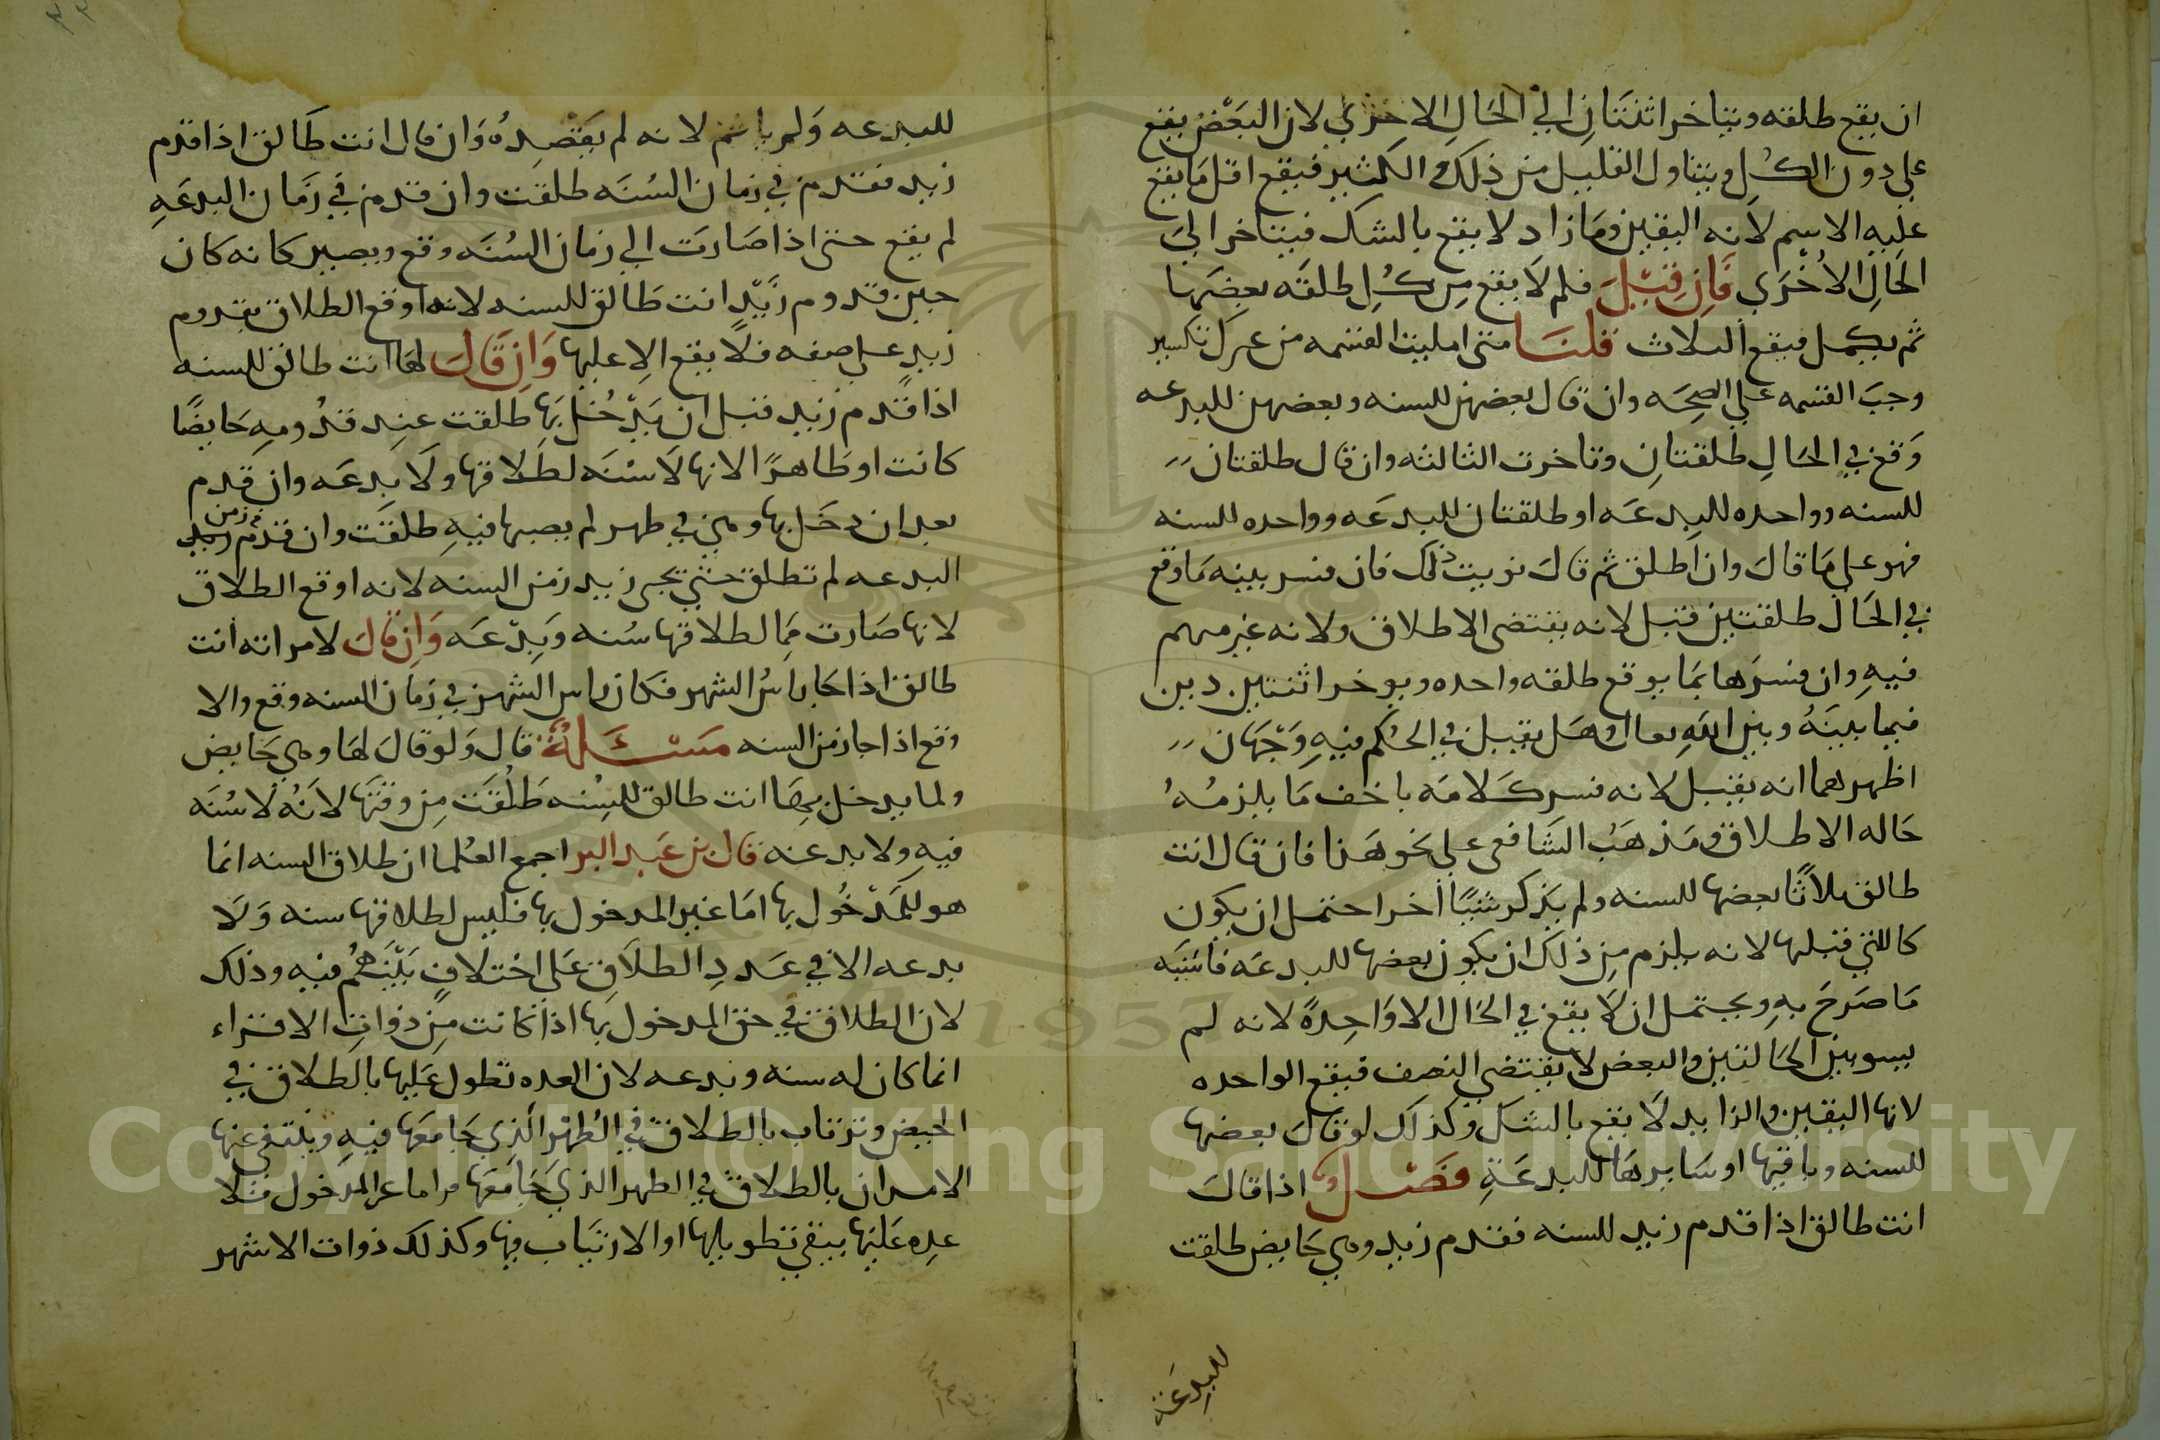 ان يقع طلقه ويتاخر اثنتان الي الحَال الاخرَي لان البَعْض يقع
علي دون الكُل ويتناول القليل من ذلك والكثير فيقع اقل مَا يقع
عليه الاسم لانه اليقين ومَا زاد لا يقع بالشك فيتاخر الي
الحَال الاُخْرَي فَاِن قِيْلَ فلم لَا يقع مِن كُل طلقَه بعضِهَا
ثم يكمل فيقع الثلاث قلنَا متي امكنت القسمه من غير تكسير
وجبَ القسمه علي الصحِحَه وان قال بعضهن للسنه وبعضهن للبدعه
وَقع في الحَالِ طَلقتانِ وتاخرت الثالثه وان قال طلقتان
للسنه وواحده للبِدعَه او طلقتان للبدعَه وواحده للسنه
فهو علي مَا قالَ وان اطلق ثم قالَ نويت ذلك فان فسر نيته بمَا وقع
في الحَال طلقتين قبل لانه يقتضي الاطلاق ولانه غير متهم
فيهِ وان فسرَها بمَا يوقع طلقه واحده ويوخر اثنتين دين
فيما بينَهُ وبين اللهِ تعالي وهَل يقبل في الحُكم فيهِ وَجْهَان
اظهرهما انه يقبل لانه فسر كلَامَه باخف مَا يلزمُهُ
حَاله الاطلاق ومَذهَبُ الشَافعي علي نحو هَذا فان قال انت
طالق ثلاثًا بعضها للسنه ولم يَذكر شيئًا اخر احتمل ان يكون
كالتي قبلها لانه يلزم مِن ذلك ان يكون بعضها للبدعَه فاشبَه
مَا صَرحَ بِهِ ويحتمل ان لَا يقع في الحَال الا وَاحِدةً لانه لم
يسو بين الحَالتين والبعض لا يقتضي النصف فيقع الواحده
لانها اليقين والزايد لَا يقع بالشك وكذلك لو قال بعضها
للسنه وبَاقيها او سَايرهَا للبدعَةِ فصْل اذا قالَ
انت طالق اذا قدم زيد للسنه فقدم زيد وهي حَايض طلقت
للبِدعَة
للبدعه وَلم ياثم لانه لم يَقصِدهُ وَان قال انت طَالق اذا قدم
زيد فقدم في زمان السُنَه طلقت وان قدم في زَمان البدعَهِ
لم يقع حتي اذا صَارت الي زمان السُنَه وقع ويصير كانه كان
حين قدوم زيْدٍ انت طَالق للسنه لانه اوقع الطلاق بقدوم
زيدٍ علي صفه فلَا يقع الا عليها وَاِن قَالَ لهَا انت طالق للسنه
اذا قدم زيد قبل ان يَدْخُل بَها طلقت عند قدُومِهِ حَايضًا
كانت او طَاهرًا لانها لَا سْنَه لطَلَاقها ولَا بِدعَه وان قدم
بعد ان دخَل بها وهي في طهر لم يصبها فيهِ طلقَت وان قدم زيد زمن
البدعه لم تطلق حتي يجي زيد زمن السنه لانه اوقع الطلاق
لانها صَارت ممَا لطلاقها سُنه وَبِدْعَه وَاِن قَالَ لامراته انت
طالق اذا جَا رَاسُ الشهر فكان راس الشهر في زمَان السنه وقع والا
وقع اذا جا زمن السنه مَسْئَلَةُ قال وَلو قالَ لهَا وهي حَايض
ولما يدخل بهَا انت طالق للسِنه طَلُقَت مِن وقتهَا لانَهُ لَا سُنَه
فيهِ ولا بدعه قال بن عَبد البر اجمع العُلما ان طلاق السنه انما
هو للمَدْخُول بها امَا غير المدخول بها فليس لطلاقها سنه وَلَا
بدعه الا في عَدد الطلَاقِ عَلي اختلافٍ بَيْنَهُم فيه وذلك
لان الطلاق في حق المدخول بهَا اذا كانت مِن ذواتِ الاقراء
انما كان له سنه وبدعه لان العده تطول عَليها بالطلاق في
الحيض وترتاب بالطلاق في الطُهْر الذِي جَامعَها فيهِ وينتفي عنها
الامران بالطلاق في الطهر الذي جَامعَهَا فراما غير المدخول فلا
عِده عَليْها ينبغي تطويلها او الارتيَاب فيها وكذلك ذوات الاشهر
Copyright © King Saud University
1957